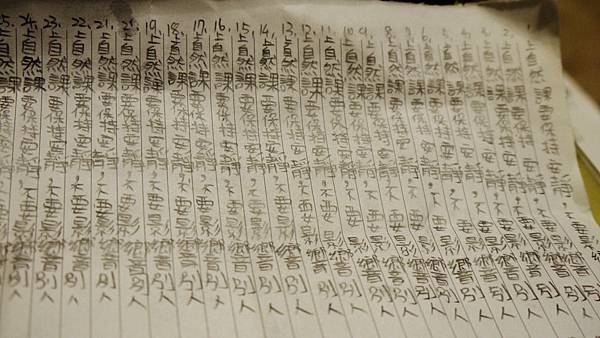 1.上自然課要保持安靜,不要影響
2.上自然課要保持安靜,不要影響別人
3.上自然課要保持安靜,不要影響別人
4.上自然課要保持安靜,不要影響別人
5.上自然課要保持安靜,不要影響別人
6.上自然課要保持安靜,不要影響別人
7.上自然課要保持安靜,不要影響別人
8.上自然課要保持安靜,不要影響別人
9.上自然課要保持安靜,不要影響別人
10.上自然課要保持安靜,不要影響別人
11.上自然課要保持安靜,不要影響別人
12.上自然課要保持安靜,不要影響別人
13.上自然課要保持安靜,不要影響別人
14.上自然課要保持安靜,不要影響別人
15.上自然課要保持安靜,不要影響別人
16.上自然課要保持安靜,不要影響別人
17.上自然課要保持安靜,不要影響別人
18.上自然課要保持安靜,不要影響別人
19.上自然課要保持安靜,不要影響別人
20.上自然課要保持安靜,不要影響別人
21.上自然課要保持安靜,不要影響別人
22.上自然課要保持安靜,不要影響別人
23.上自然課要保持安靜,不要影響別人
24.上自然課要保持安靜,不要影響別人
25.上自然課